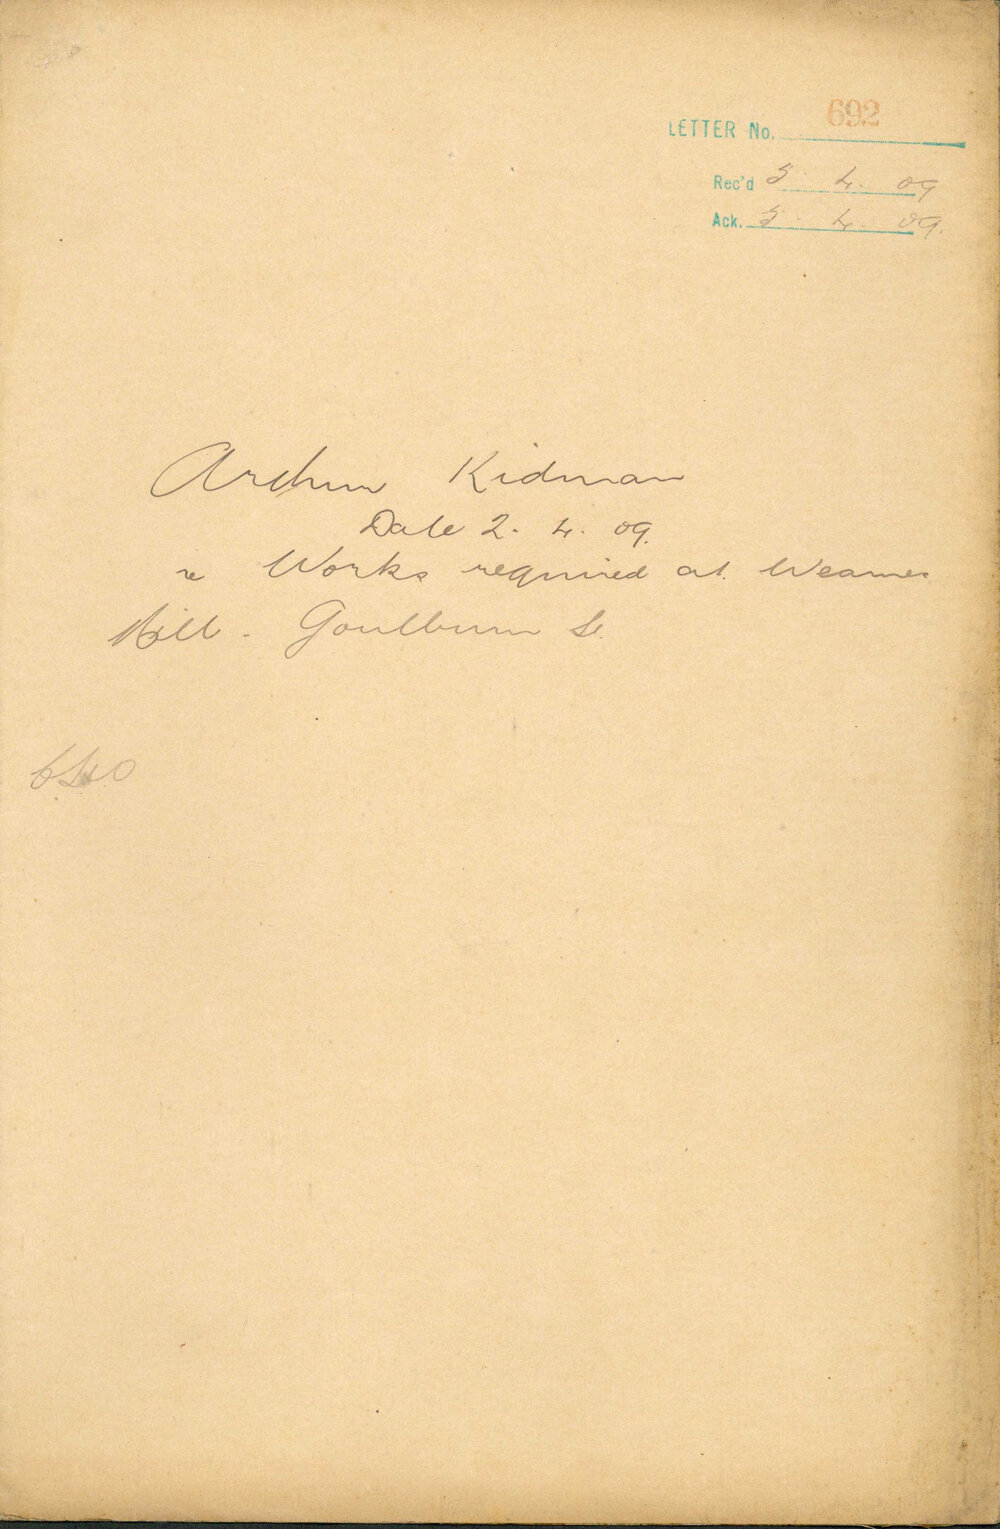 LETTER No. 692
Rec'd 5. 4. 09
Ack. 5. 4. 09.
Arthur Kidman
Date 2. 4. 09.
re Works required at Wearnes
Mill - Goulburn St.